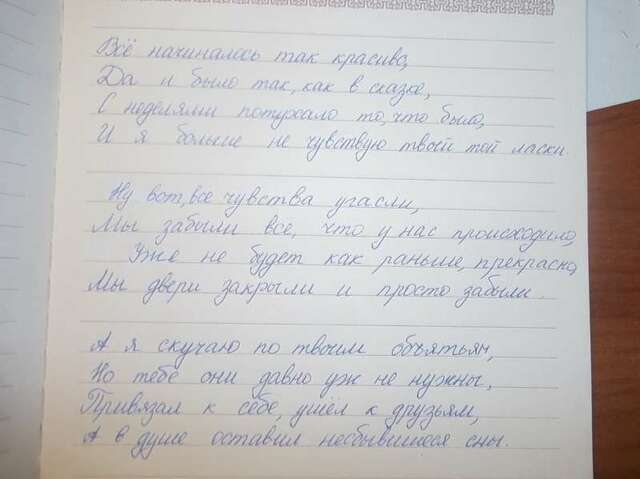 Всё начиналось так красиво,
Да и было так, как в сказке,
С неделями потухало то, что было,
И я больше не чувствую твоей той ласки.
Ну вот, все чувства угасли,
Мы забыли все, что у нас происходило,
Уже не будет как раньше, прекрасно,
Мы двери закрыли и просто забыли.
А я скучаю по твоим объятьям,
Но тебе они давно уж не нужны,
Привязал к себе, ушёл к друзьям,
А в душе оставил несбывшиеся сны.